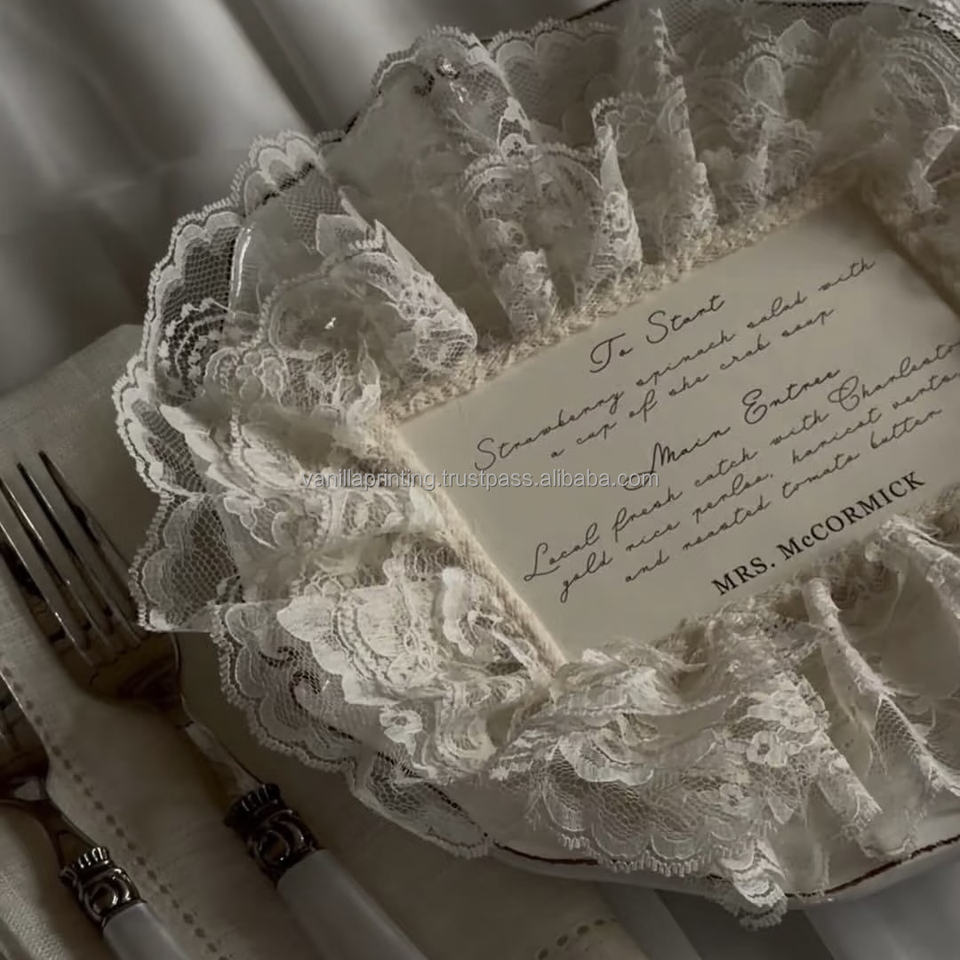 To Start
Strawberry spinach salad with
a cup of she crab soup
Main Entree
Local fresh catch with Charlesto
gold rice perloo, haricot verts,
and roasted tomato butter
MRS. McCORMICK
vanillaprinting.trustpass.alibaba.com